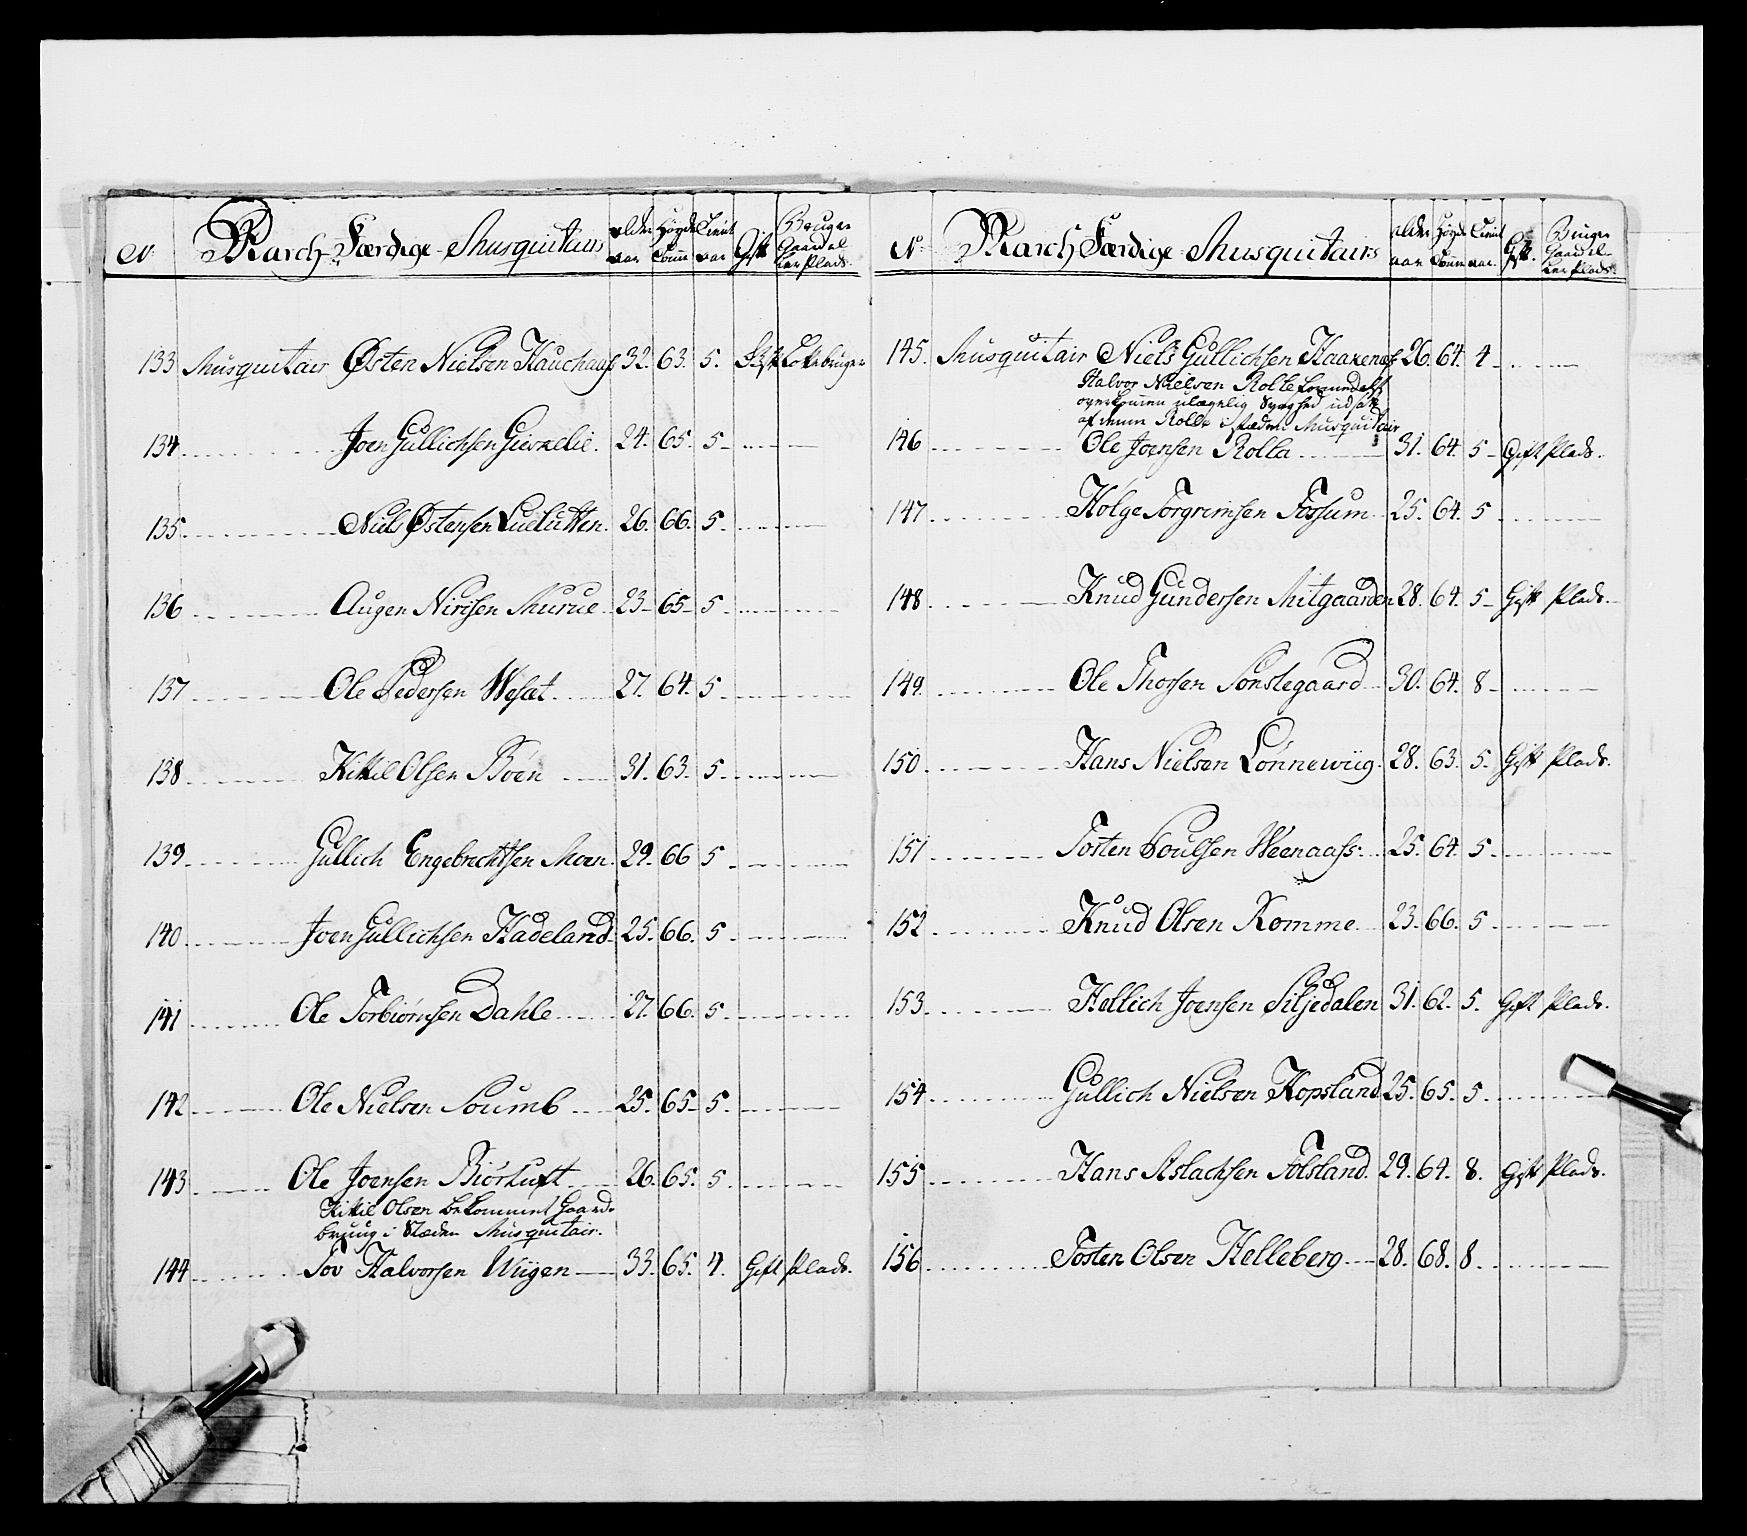 No March Færdige Musquitairs alder aar Høyde Tomer tient aar Gift Bruger Gaard el. ler Plads.
133 Musquitair Østen Nielsen Hauchaas 32. 63. 5. Gift
134 Joen Gullichsen 24. 65. 5
135 Niels Østensen 26. 66. 5
136 Augen Nirisen Murue 23 65 5
137 Ole Pedersen Wesæt 27. 64. 5
138 Kittil Olsen Böen 31. 63. 5
139 Gullich Engebrechtsen Moen 29. 66 5
140 Joen Gullichsen Hadeland 25. 66. 5
141 Ole Torbiørnsen Dahle 27. 66. 5
142 Ole Nielsen Soumb 25. 65 5
143 Ole Joensen Biörtuft 26. 65. 5
Kittil Olsen bekommet Gaards
brug i Stæden Musquitair.
144 Tov Halvorsen Wiigen 33. 65. 4. Gift Plads.
No March Færdige Musquitairs alder aar Høyde Tomer tient aar Gift Bruger Gaard el. ler Plads.
145. Musquitair Niels Gullichsen 26. 64. 4
Halvor Nielsen Rolle formedelst
overkommen ulægelig Svaghed udsatt
af Rolle i stæden Musquitair
146 Ole Joensen Rolla 31. 64. 5 Gift Plads.
147 Holge Torgrimsen Fossum 25. 64. 5
148 Knud Gundersen Mitgaarden 28. 64. 5 Gift Plads.
149 Ole Thorsen Sønstegaard 30. 64. 8
150 Hans Nielsen Lønnewiig 28. 63. 5. Gift Plads.
151 Tosten Poulsen Weenaass 25. 64. 5
152 Knud Olsen Romme 23. 66. 5
153 Hellich Joensen Siljedalen 31. 62. 5. Gift Plads.
154 Gullich Nielsen Hopsland 25. 65. 5
155 Hans Aslachsen Folsland. 29. 64. 8. Gift Plads.
156 Tosten Olsen Helleberg 28. 68. 8